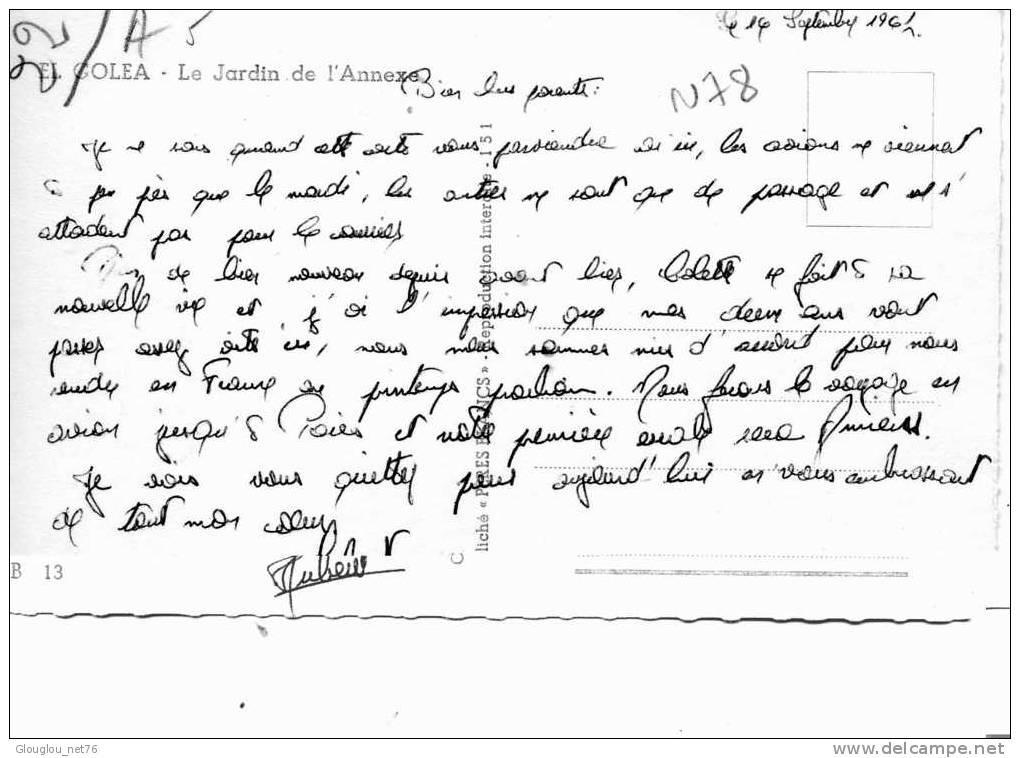 22/A 5
Le 14 Septembre 1961.
EL GOLEA - Le Jardin de l'Annexe
Bien chers parents:
N78
Je ne sais quand cette carte vous parviendra car ici, les avions ne viennent
à peu près que le mardi, les autres ne sont que de passage et ne s'
attardent pas pour le courrier
Rien de bien nouveau depuis avant hier, Colette se fait à sa
nouvelle vie et j'ai l'impression que mes deux ans vont
passer assez vite ici, nous nous sommes mis d'accord pour nous
rendre en France au printemps prochain. Nous ferons le voyage en
avion jusqu'à Paris et notre première escale sera Amiens.
Je vais vous quitter pour aujourd'hui en vous embrassant
de tout mon coeur
Hubert
Cliché « PERES BLANCS » - Reproduction interdite 151
B 13
Glouglou_net76
www.delcampe.net